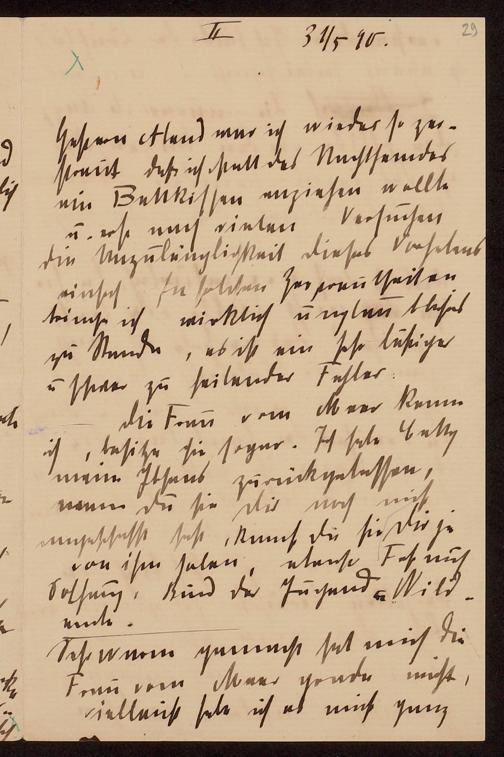 29
II 31/5 90.
Gestern Abend war ich wieder so zer-
streut daß ich statt des Nachthemdes
ein Bettkissen anziehen wollte
u. erst nach vielen Versuchen
die Unzulänglichkeit dieses Vorhabens
einsah In solchen Zerstreutheiten
bringe ich wirklich unglaubliches
zu Stande, es ist ein sehr lästiger
u schwer zu heilender Fehler.
Die Frau vom Meer kenne
ich, besitze sie sogar. Ich habe Betty
meine Ibsens zurückgelassen,
wenn du sie dir noch nicht
angeschafft hast, kannst du sie dir ja
von ihr holen, ebenso
Kind der Jugend Wild-
ente.
Sehr warm gemacht hat mich die
Frau vom Meer gerade nicht,
vielleicht habe ich es nicht ganz